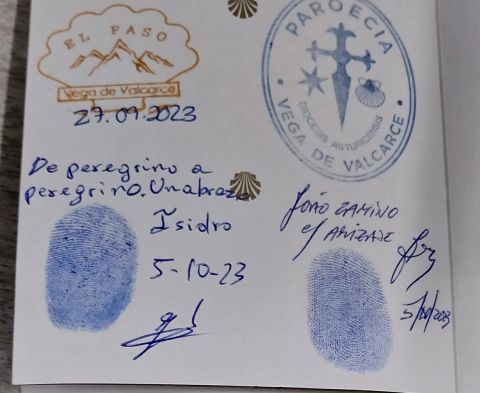 EL PASO
Vega de Valcarce
27.09.2023
PAROECIA
DIOCESIS ASTURICENSIS
VEGA DE VALCARCE
De peregrino a
peregrino. Un abrazo
Isidro
5-10-23
JOÃO
5/10/2023